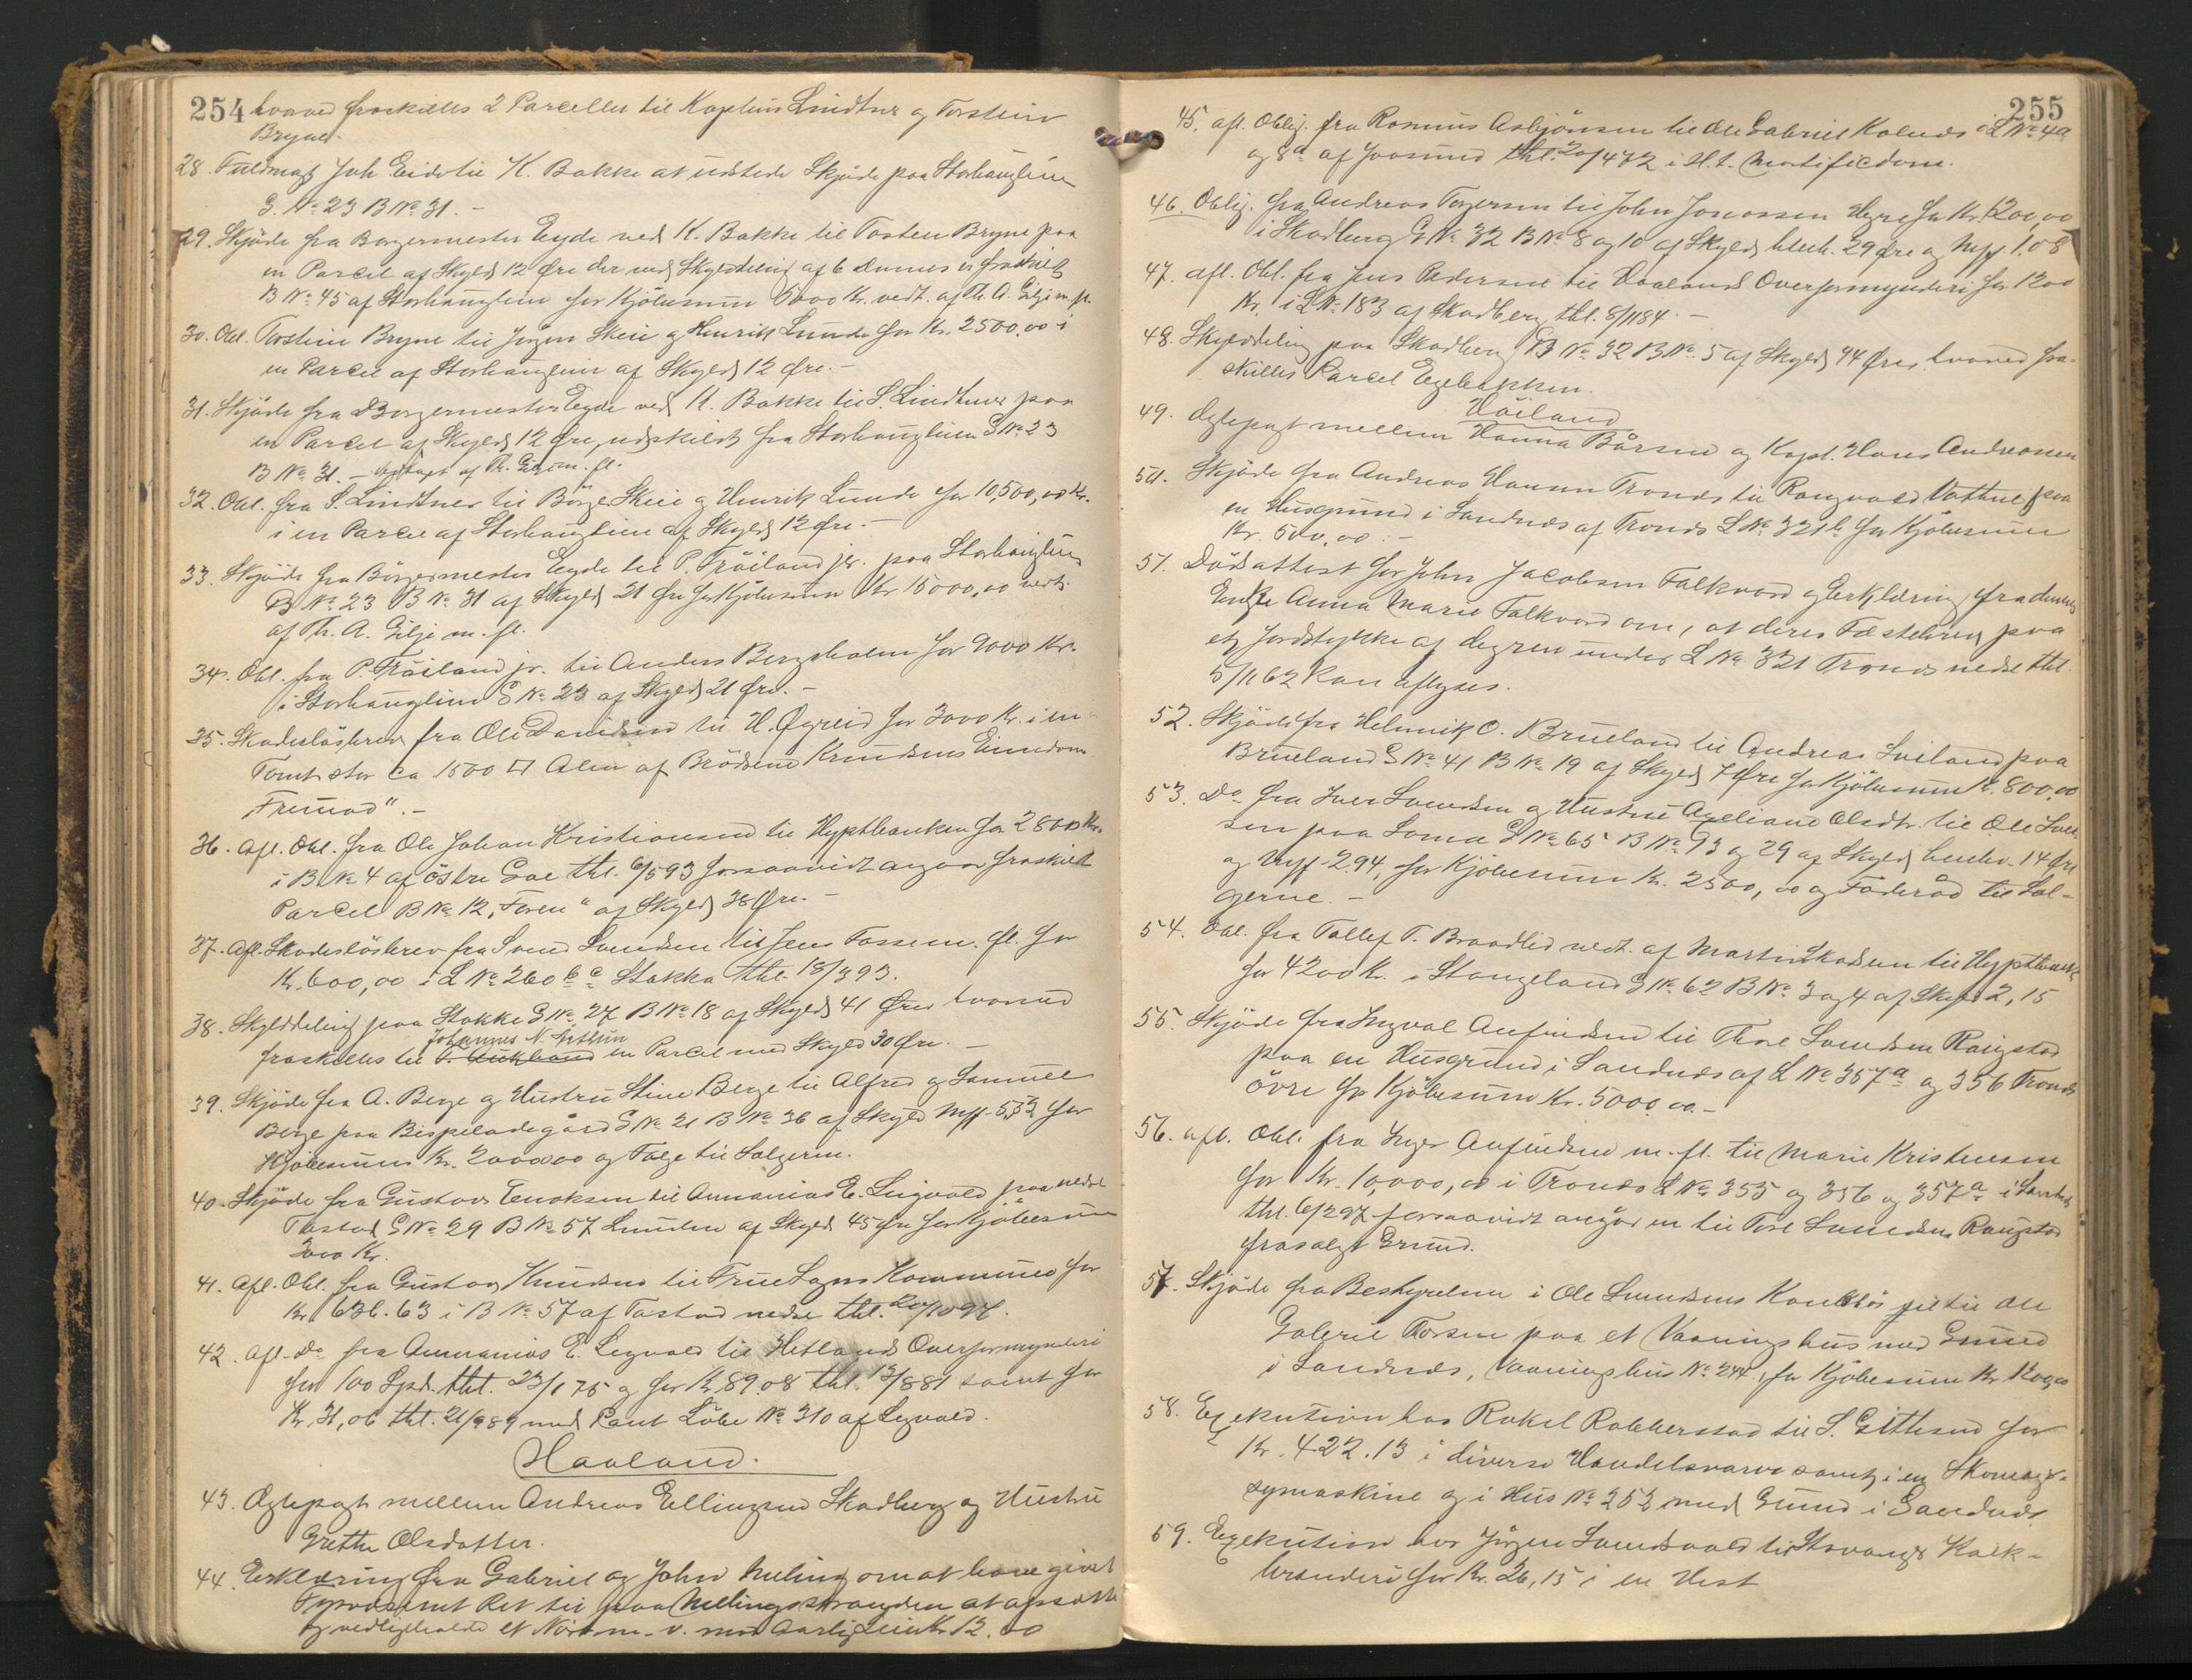 254 hvorved fraskilles 2 Parceller til Kaptein Lindtner og Torstein
Bryne.
28. Fuldmagt Joh Eide til K. Bakke at udstede Skjöde paa Storhauglien
G. No 23 B No 31. -
29. Skjöde fra Borgermester Eyde ved K. Bakke til Tosten Bryne paa
en Parcel af Skyld 12 Øre der ved Skylddeling af 6 dennes er fraskilt
B No 45 af Storhauglien for Kjöbesum 5000 Kr. vedt. af Th. A. Gilje m. fl.
30. Obl. Torstein Bryne til Jörgen Skeie og Henrik Lunde for Kr. 2500,00 i
en Parcel af Storhauglien af Skyld 12 Øre. -
31. Skjöde fra Borgermester Eyde ved K. Bakke til S. Lindtner paa
en Parcel af Skyld 12 Øre, udskildt fra Storhauglien G No 23
B No 31. - vedtaget af Th. Gilje m. fl.
32. Obl. fra S. Lindtner til Börge Skeie og Henrik Lunde for 10,500,00 Kr.
i en Parcel af Storhauglien af Skyld 12 Øre. -
33. Skjöde fra Börgermester Eyde til P. Tröiland jr. paa Storhauglien
G No 23 B No 31 af Skyld 21 Øre for Kjöbesum Kr 15000,00 vedt.
af Th. A. Gilje m. fl.
34. Obl. fra P. Tröiland jr. til Anders Bergsholm for 9000 Kr.
i Storhauglien G No 23 af Skyld 21 Øre. -
35. Skadeslösbrev fra Ole Danielsen til H. Øgreid for 3000 Kr. i en
Tomt stor ca 1500 □ Alen af Brödrene Knudsens Eiendom
Fremad". -
36. Afl. Obl. fra Ole Johan Kristiansen til Hyptbanken for 2800 Kr.
i B No 4 af östre Goe thl. 6/593 forsaavidt angaar fraskilt
Parcel B No 12, "Foren" af Skyld 38 Øre. -
37. Afl. Skadeslösbrev fra Svend Svendsen til Jens Tosse m. fl. for
Kr. 600,00 i L No 260 b c Stokka thl. 18/393.
38. Skylddeling paa Stokke G No 27 B No 18 af Skyld 41 Øre hvorved
Johannes N.
fraskilles til en Parcel med Skyld 30 Øre. -
39. Skjöde fra A. Berge og Hustru Stine Berge til Alfred og Samuel
Berge paa Bispeladegård G No 21 B No 36 af Skyld Mrk 5,53 for
Kjöbesum Kr. 20000,00 og Følge til Sælgerne.
40. Skjöde fra Gustav Enoksen til Annanias E. Leigvold paa nedre
Tastad G No 29 B No 57 Lunden af Skyld 45 Øre for Kjöbesum
3000 Kr.
41. Afl. Obl. fra Gustav Knudsen til True Sogns Kommune for
Kr. 636.63 i B No 57 af Tastad nedre thl. 20/1097.
42. Afl. Do fra Annanias E. Legvold til Hetlands Overformynderi
for 100 Spd. thl. 23/175 og for Kr. 89.08 thl. 13/881 samt for
Kr. 31,06 thl. 21/989 med Pant Löbe No 310 af Legvold.
Haaland.
43. Ægtepagt mellem Andreas Ellingsen Skadberg og Hustru
Grethe Olsdatter.
44. Erklæring fra Gabriel og John Meling om at have givet
Fyrvæsenet Ret til paa Melingsstranden at opsætte
og vedligeholde et Nöst m. v. mod aarlig Leie Kr 12.00
255
45. afl. Oblig. fra Rasmus Asbjörnsen til Ole Gabriel Kolnes i L No 4a
og 8a af Joasund thl. 20/472 i H. t. Mortificdom.
46. Oblig. fra Andreas Torgersen til John Jonassen Hegre for Kr. 1200,00
i Skadberg G No 32 B No 8 og 10 af Skyld hhv. 29 Øre og Mrk 1.08
47. Afl. Obl. fra Jens Pedersen til Haalands Overformynderi for 1200
Kr. i L No 183 af Skadberg thl. 8/1184. -
48. Skylddeling paa Skadberg G No 32 B No 5 af Skyld 94 Øre, hvorved fra-
skilles Parcel Egebakken.
Höiland
49. Ægtepagt mellem Hanna Bårsen og Kapt. Hans Andreasen
50. Skjöde fra Andreas Hansen Tronds til Rangvald Vathne paa
en Husgrund i Sandnæs af Tronds L No 321 b for Kjöbesum
Kr. 500,00. -
51. Dödsattest for John Jacobsen Folkvord og Erklæring fra dennes
Enke Anna Marie Folkvord om, at deres Fæstebrev paa
et Jordstykke af Legren under L No 321 Tronds nedre thl.
5/1162 kan aflyses.
52. Skjöde fra Helmik O. Brueland til Andreas Sviland paa
Brueland G No 41 B No 19 af Skyld 7 Øre for Kjöbesum Kr. 800,00
53. Do fra Iver Svendsen og Hustru Axeliane Olsdtr. til Ole Iver-
sen paa Soma G No 65 B No 93 og 29 af Skyld henhv. 14 Øre
og Mrk 2.94, for Kjöbesum Kr. 2500,00 og Föderåd til Sæl-
gerne. -
54. Obl. fra Tollef T. Braadlid vedt. af Martin Skadsem til Hyptbank
for 4200 Kr. i Stangeland G No 62 B No 3 og 4 af Skyld 2,15
55. Skjöde fra Ingval Aufindsen til Thore Svendsen Raugstad
paa en Husgrund i Sandnæs af L No 357 a og 356 Tronds
övre for Kjöbesum Kr. 5000.00. -
56. Afl. Obl. fra Inger Aufindsen m. fl. til Marie Kristensen
for Kr. 10,000,00 i Tronds L No 355 og 356 og 357 a i Sandnæs
thl. 6/297 forsaavidt angår en til Tore Svendsen Raugstad
frasolgt Grund.
57. Skjöde fra Bestyrelsen i Ole Svendsens Konkbo til Ole
Gabriel Torsen paa et Vaaningshus med Grund
i Sandnæs, Vaaningshus No 244, for Kjöbesum Kr.
58. Exekution hos Rakel Robberstad til S. Gittesen for
Kr. 422.13 i diverse Handelsvarer samt i en Skomager-
symaskine og i Hus No 253 med Grund i Sandnæs
59. Exekution hos Jörgen Svendsvold til Stavanger Kalk-
brænderi for Kr. 26,15 i en Hest